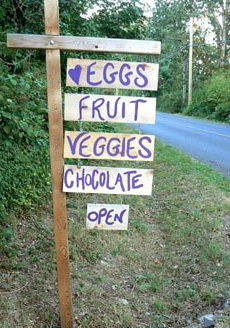 ♥EGGS
FRUIT
VEGGIES
CHOCOLATE
OPEN